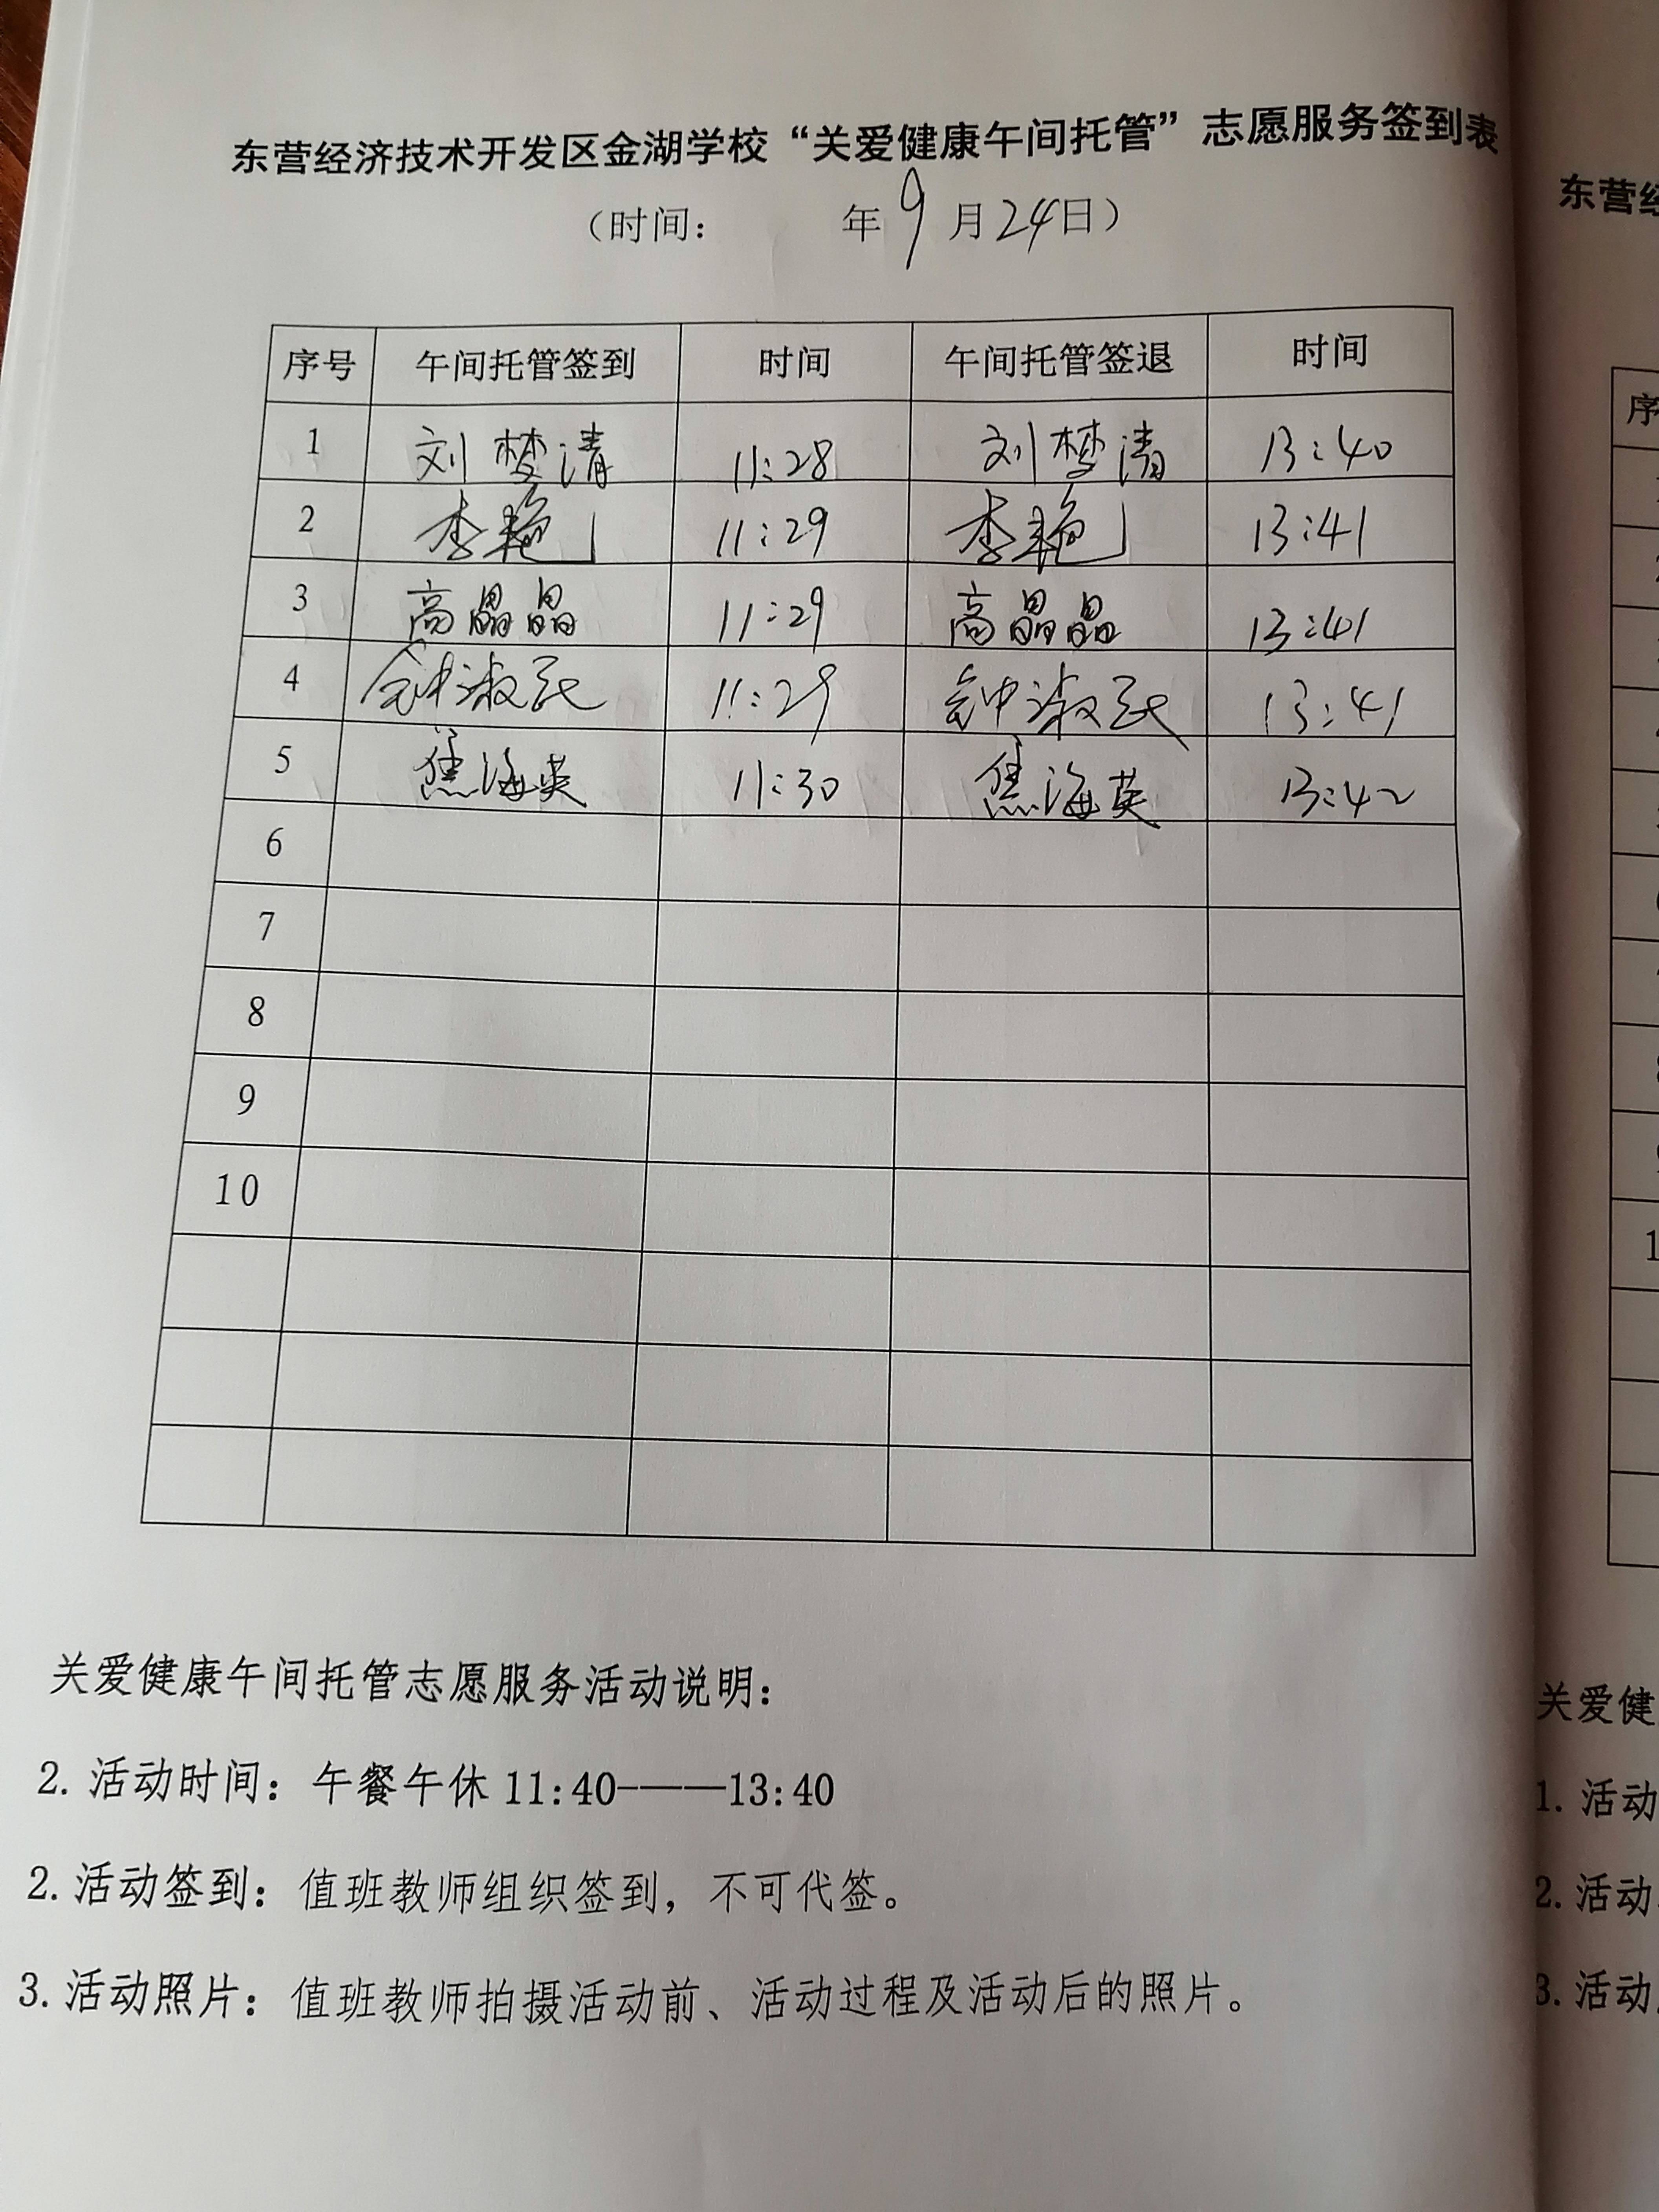 东营经济技术开发区金湖学校“关爱健康午间托管”志愿服务签到表
（时间： 年9月24日）
序号 午间托管签到 时间 午间托管签退 时间
1 刘梦清 11:28 刘梦清 13:40
2 李艳 11:29 李艳 13:41
3 高晶晶 11:29 高晶晶 13:41
4 钟淑 11:29 钟淑 13:41
5 焦海英 11:30 焦海英 13:42
6
7
8
9
10
关爱健康午间托管志愿服务活动说明：
2.活动时间：午餐午休11:40-——13:40
2.活动签到：值班教师组织签到，不可代签。
3.活动照片：值班教师拍摄活动前、活动过程及活动后的照片。
东营经
序
关爱健
1.活动
2.活动
3.活动